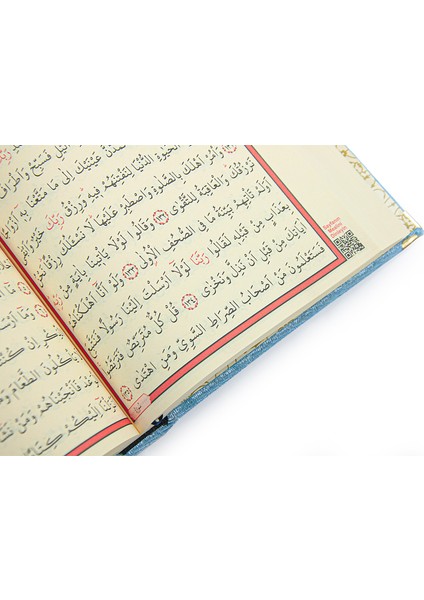 الَّيْلِ فَسَبِّحْ وَاَطْرَافَ
تَمُدَّنَّ عَيْنَيْكَ اِلٰى مَا مَتَّعْنَا بِه۪ٓ
الْحَيٰوةِ الدُّنْيَا لِنَفْتِنَهُمْ ف۪يهِ وَرِزْقُ رَبِّكَ خَيْرٌ
وَأْمُرْ اَهْلَكَ بِالصَّلٰوةِ وَاصْطَبِرْ عَلَيْهَا لَا نَسْـَٔلُكَ رِزْقًا
نَرْزُقُكَ وَالْعَاقِبَةُ لِلتَّقْوٰى ﴿١٣٢﴾ وَقَالُوا لَوْلَا يَأْت۪ينَا بِاٰيَةٍ مِنْ
اَوَلَمْ تَأْتِهِمْ بَيِّنَةُ مَا فِي الصُّحُفِ الْاُولٰى ﴿١٣٣﴾ وَلَوْ اَنَّٓا اَهْلَكْنَاهُمْ
بِعَذَابٍ مِنْ قَبْلِه۪ لَقَالُوا رَبَّنَا لَوْلَٓا اَرْسَلْتَ اِلَيْنَا رَسُولًا فَنَتَّبِعَ
اٰيَاتِكَ مِنْ قَبْلِ اَنْ نَذِلَّ وَنَخْزٰى ﴿١٣٤﴾ قُلْ كُلٌّ مُتَرَبِّصٌ فَتَرَبَّصُوا
فَسَتَعْلَمُونَ مَنْ اَصْحَابُ الصِّرَاطِ السَّوِيِّ وَمَنِ اهْتَدٰى ﴿١٣٥﴾
Sayfanın
اِنْ
يَأْكُلُونَ الطَّعَامَ وَمَا
فَاَنْجَيْنَاهُمْ وَمَنْ
اِلَيْكُمْ